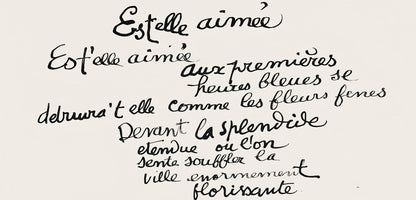 Est elle aimée
Est'elle aimée
aux premières
heures bleues se
detruira't elle comme les fleurs fenes
Devant la splendide
etendue ou l'on
sente souffler la
ville enormement
florissante